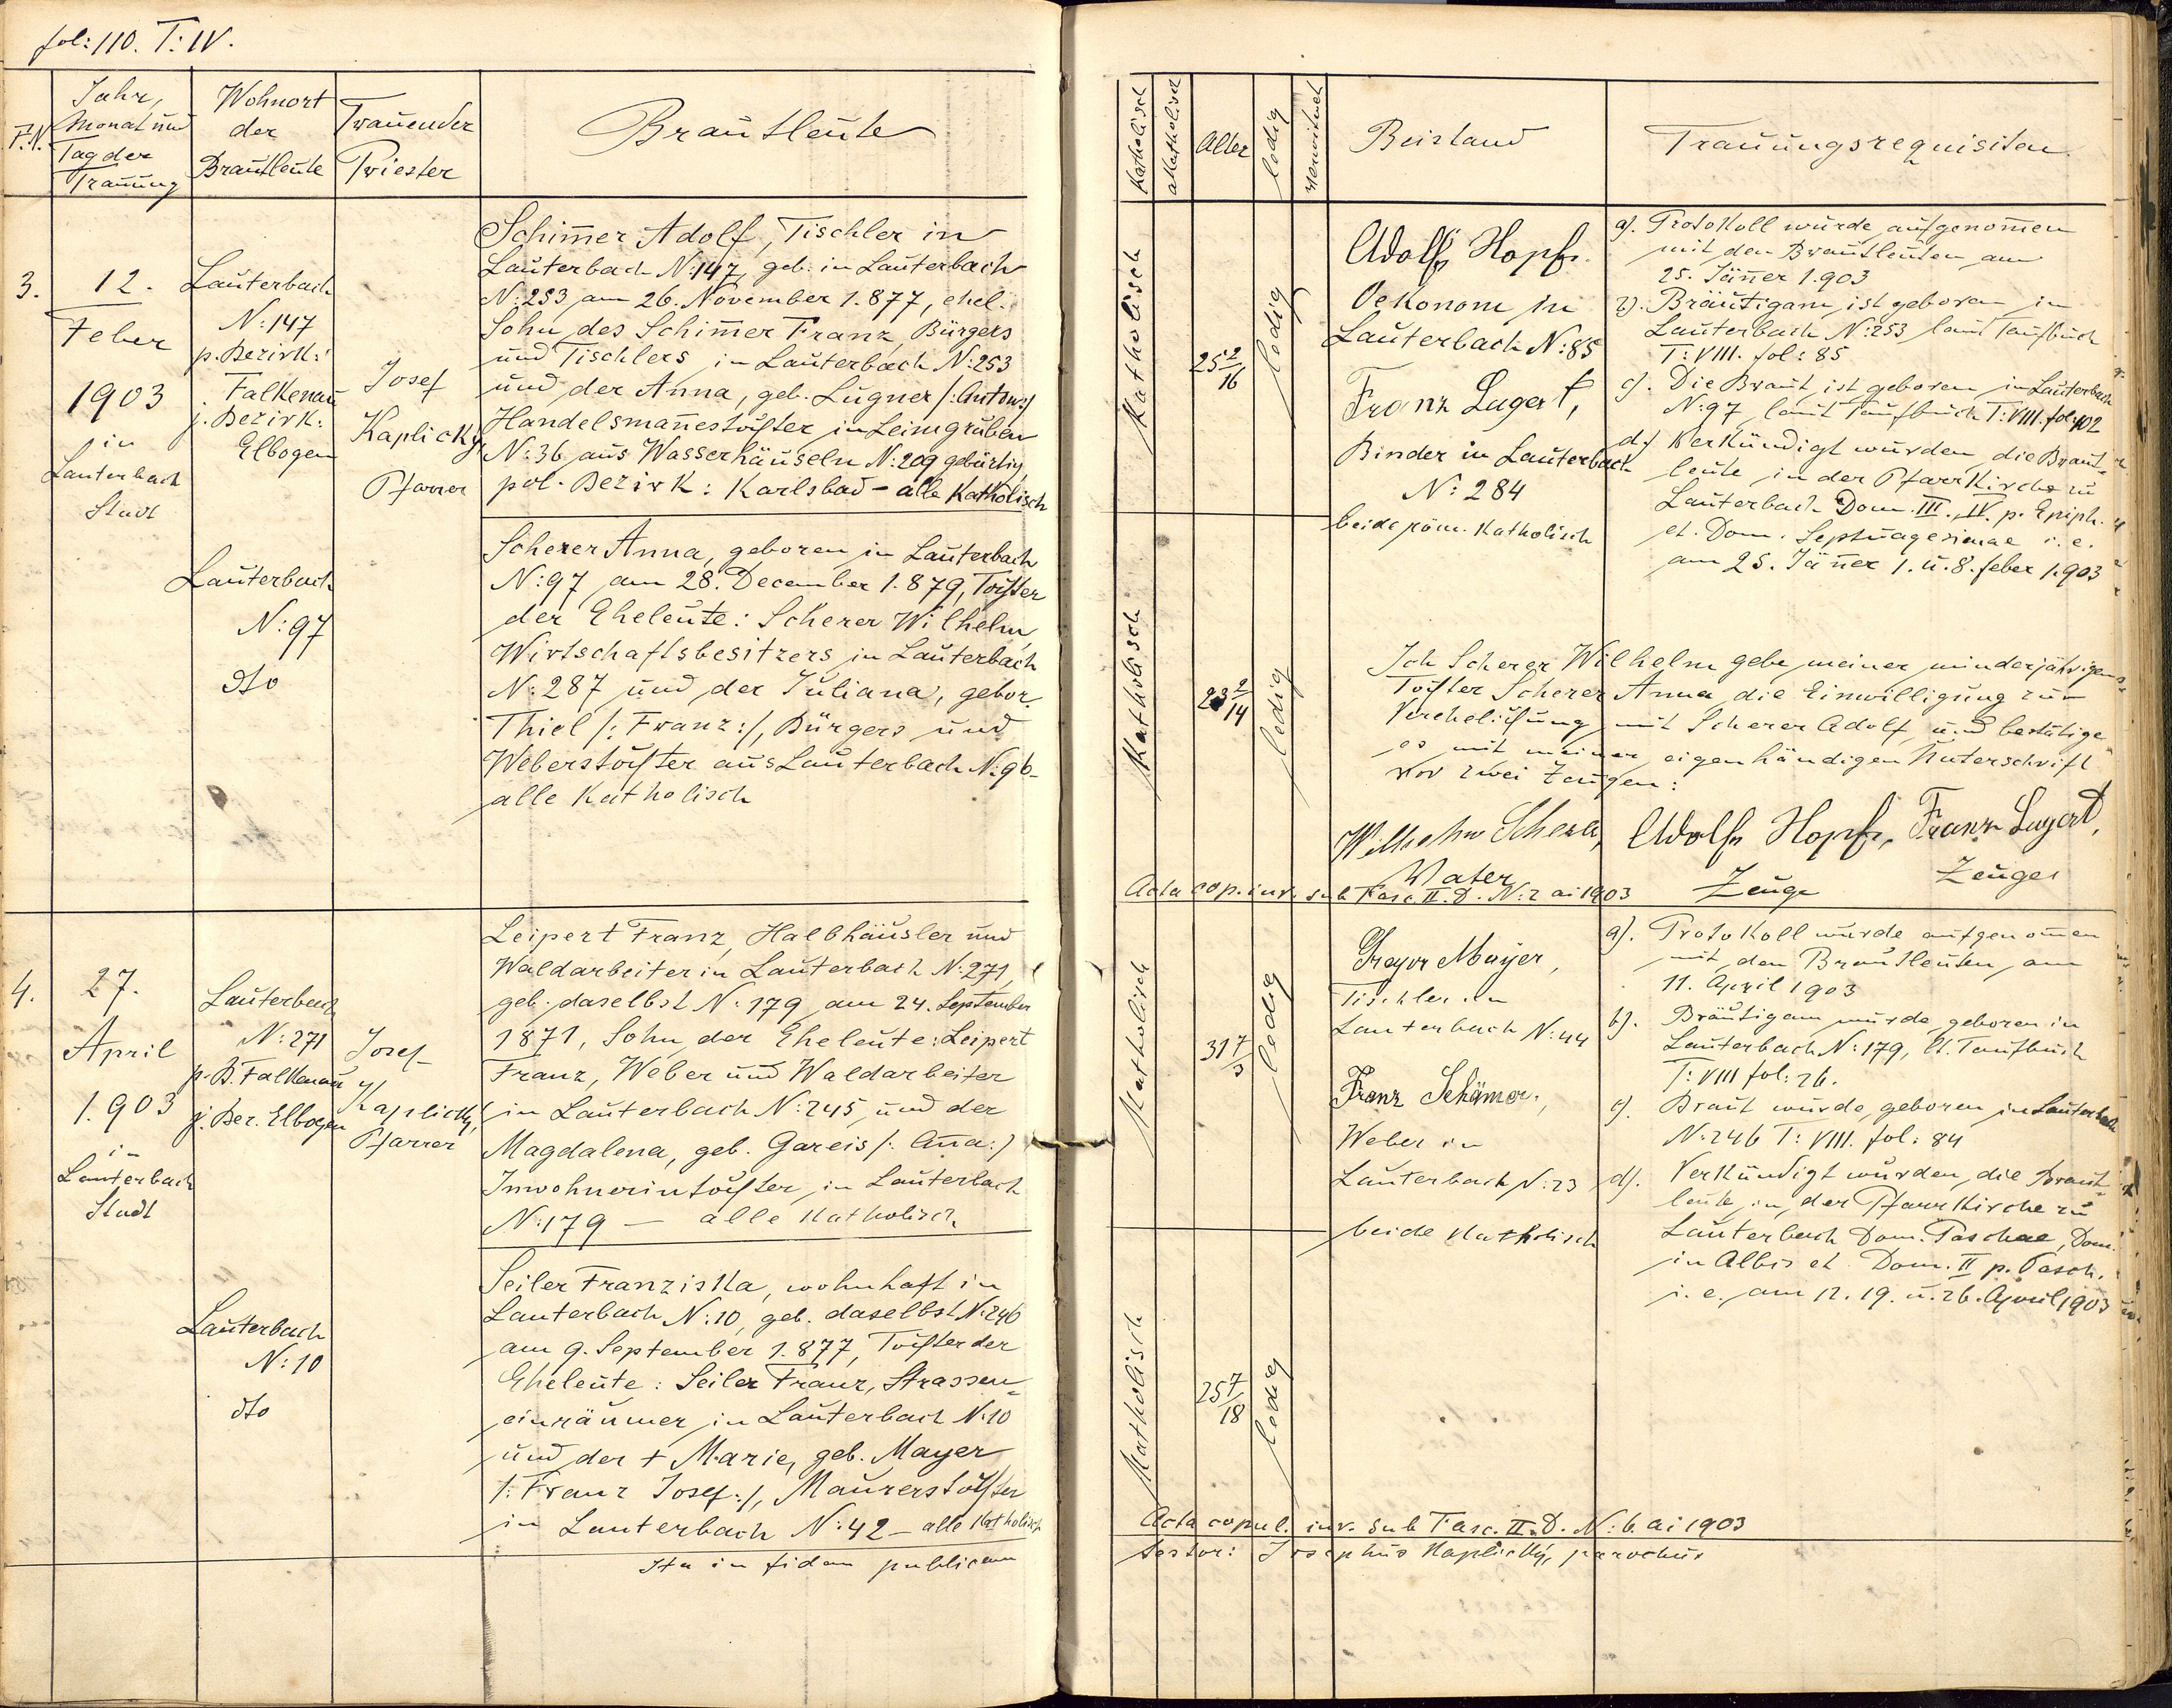 fol: 110. T: IV.
F.N.
Jahr,
Monat und
Tag der
Trauung
Wohnort
der
Brautleute
Trauender
Priester
Brautleute
3.
12.
Feber
1903
in
Lauterbach
Stadt
Lauterbach
N: 147
p. Bezirk:
Falkenau
j. Bezirk:
Elbogen
Josef
Kaplický
Pfarrer
Schim̄er Adolf, Tischler in
Lauterbach N: 147, geb. in Lauterbach
N: 253 am 26. November 1.877, ehel.
Sohn des Schim̄er Franz, Bürgers
und Tischlers in Lauterbach N: 253
und der Anna, geb. Lugner /: Anton :/
Handelsman̄estochter in Leimgruben
N: 36 aus Wasserhäuseln N: 209 gebürtig
pol. Bezirk: Karlsbad – alle Katholisch
Lauterbach
N: 97
dto
Scherer Anna, geboren in Lauterbach
N: 97 am 28. December 1.879, Tochter
der Eheleute: Scherer Wilhelm,
Wirtschaftsbesitzers in Lauterbach
N: 287 und der Juliana, gebor.
Thiel /: Franz :/, Bürgers und
Weberstochter aus Lauterbach N: 96 –
alle Katholisch
4.
27.
April
1.903
in
Lauterbach
Stadt
Lauterbach
N: 271
p. B. Falkenau
j. Bez. Elbogen
Josef
Kaplický,
Pfarrer
Leipert Franz, Halbhäusler und
Waldarbeiter in Lauterbach N: 271,
geb. daselbst N: 179 am 24. September
1871, Sohn der Eheleute: Leipert
Franz, Weber und Waldarbeiter
in Lauterbach N: 245, und der
Magdalena, geb. Gareis /: An̄a :/
Inwohnerintochter in Lauterbach
N: 179 – alle Katholisch
Lauterbach
N: 10
dto
Seiler Franziska, wohnhaft in
Lauterbach N: 10, geb. daselbst N: 246
am 9. September 1.877, Tochter der
Eheleute: Seiler Franz, Strassen=
einräumer in Lauterbach N: 10
und der + Marie, geb. Mayer
/: Franz Josef :/, Maurerstochter
in Lauterbach N: 42 – alle Katholisch
Ita in fidem publicam
Katholisch
Akatholisch
Alter
ledig
verwitwet
Beistand
Trauungsrequisiten
Katholisch
25 2/16
ledig
Adolf Hopf.
Oekonom in
Lauterbach N: 85
Franz Lugert,
Binder in Lauterbach
N: 284
beide röm. Katholisch
a). Protokoll wurde aufgenom̄en
mit den Brautleuten am
25. Jän̄er 1.903
b). Bräutigam ist geboren in
Lauterbach N: 253 laut Taufbuch
T: VIII. fol: 85
c). Die Braut ist geboren in Lauterbach
N: 97 laut Taufbuch T: VIII. fol: 102
d.) Verkündigt wurden die Braut=
leute in der Pfarrkirche zu
Lauterbach Dom. III., IV. p. Epiph.
et. Dom. Septuagesimae i. e.
am 25. Jän̄er 1. u. 8. feber 1.903
Katholisch
23 2/14
ledig
Ich Scherer Wilhelm gebe meiner minderjährigen
Tochter Scherer Anna die Einwilligung zur
Verehelichung mit Scherer Adolf und bestätige
es mit meiner eigenhändigen Unterschrift
vor zwei Zeugen:
Wilhelm Scherer,
Vater
Adolf Hopf,
Zeuge
Franz Lugert,
Zeuge
Acta cop. inv. sub Fasc. II. D. N: 2 ai 1903
Katholisch
31 7/3
ledig
Gregor Mayer,
Tischler in
Lauterbach N: 44
Franz Schämer,
Weber in
Lauterbach N: 23
beide Katholisch
a). Protokoll wurde aufgenom̄en
mit den Brautleuten am
11. April 1903
b). Bräutigam wurde geboren in
Lauterbach N: 179, lt. Taufbuch
T: VIII fol: 26.
c). Braut wurde geboren in Lauterbach
N: 246 T: VIII. fol: 84
d). Verkündigt wurden die Braut=
leute in der Pfarrkirche zu
Lauterbach Dom. Paschae, Dom.
in Albis et Dom. II p. Pasch.
i. e. am 12. 19. u. 26. April 1903
Katholisch
25 7/18
ledig
Acta copul. inv. sub Fasc. II. D. N: 6 ai 1903
testor: Josephus Kaplický, parochus